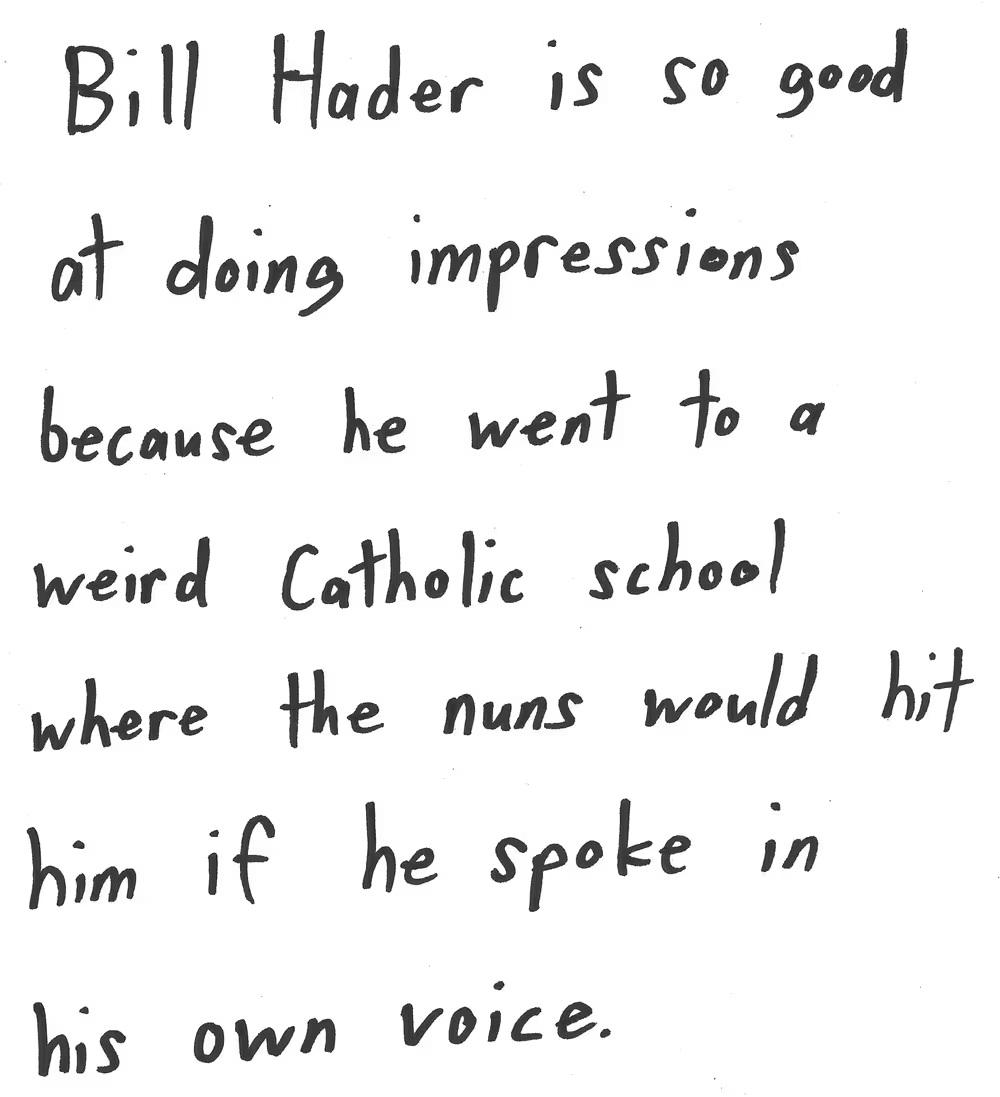 Bill Hader is so good
at doing impressions
because he went to a
weird Catholic school
where the nuns would hit
him if he spoke in
his own voice.